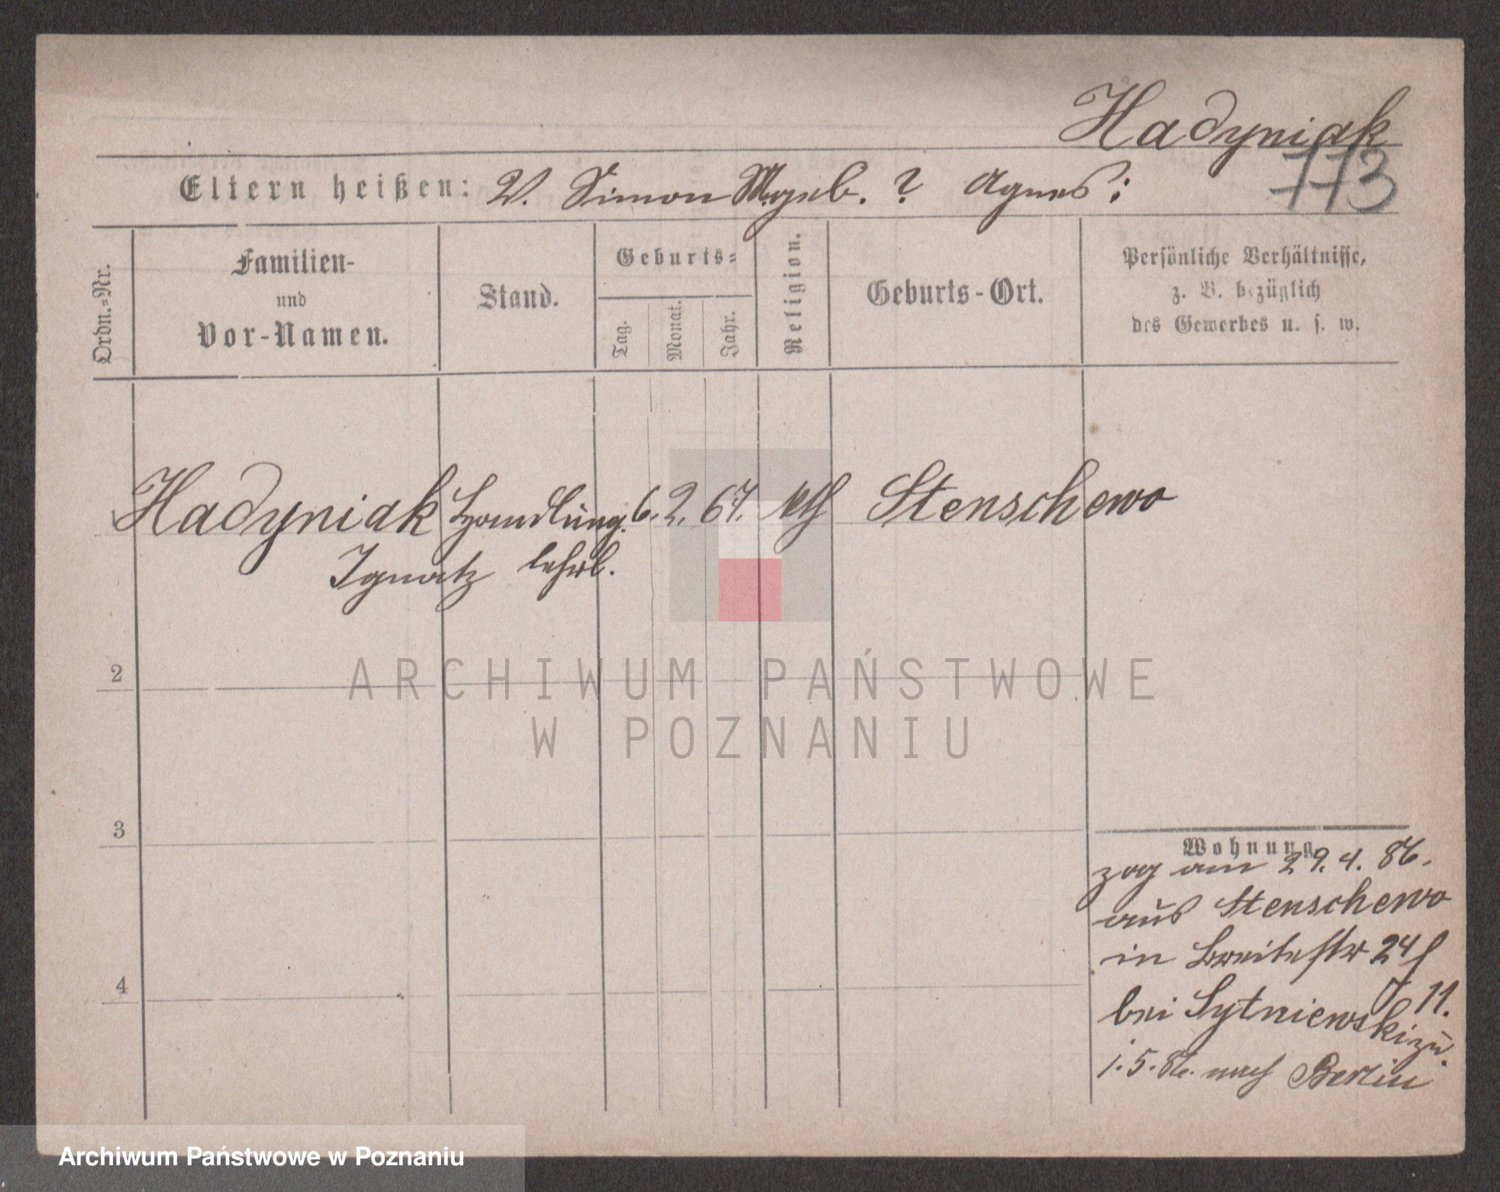 Hadyniak
113
Eltern heißen: V. Simon M. geb. ? Agnes;
Ordn.-Nr.
Familien-
und
Vor-Namen.
Stand.
Geburts-
Tag.
Monat.
Jahr.
Religion.
Geburts-Ort.
Persönliche Verhältnisse,
z. B. bezüglich
des Gewerbes u. s. w.
Hadyniak Handlung. 6. 2. 67. kth Stenschewo
Ignatz lehrl.
2
ARCHIWUM PAŃSTWOWE
W POZNANIU
3
4
Wohnung
zog am 29. 4. 86.
aus Stenschewo
in Breitestr 24
bei Sytniewski 11.
1. 5. 86. nach Berlin
Archiwum Państwowe w Poznaniu